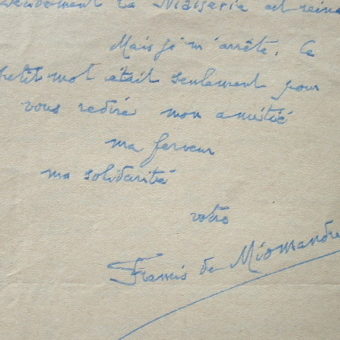 la Masseria est reine
Mais je m'arrête. Ce
petit mot était seulement pour
vous redire mon amitié
ma ferveur
ma solidarité
votre
Francis de Miomandre